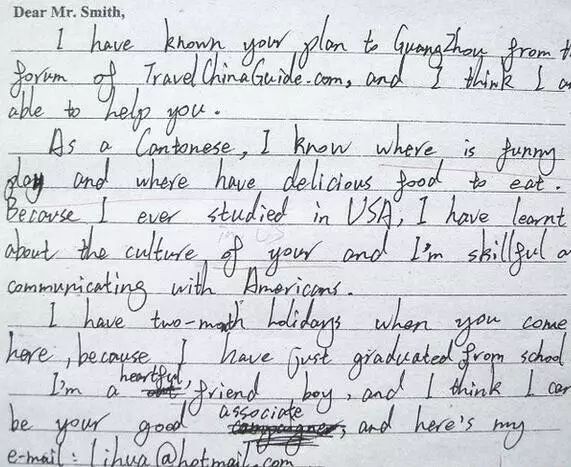 Dear Mr. Smith,
I have known your plan to GuangZhou from th
forum of TravelChinaGuide.com, and I think I a
able to help you.
As a Cantonese, I know where is funny
play and where have delicious food to eat.
Because I ever studied in USA, I have learnt
about the culture of your and I'm skillful a
communicating with Americans.
I have two-month holidays when you come
here, because I have just graduated from school
I'm a heartful, friend boy, and I think I can
be your good associate, and here's my
e-mail: lihua@hotmail.com